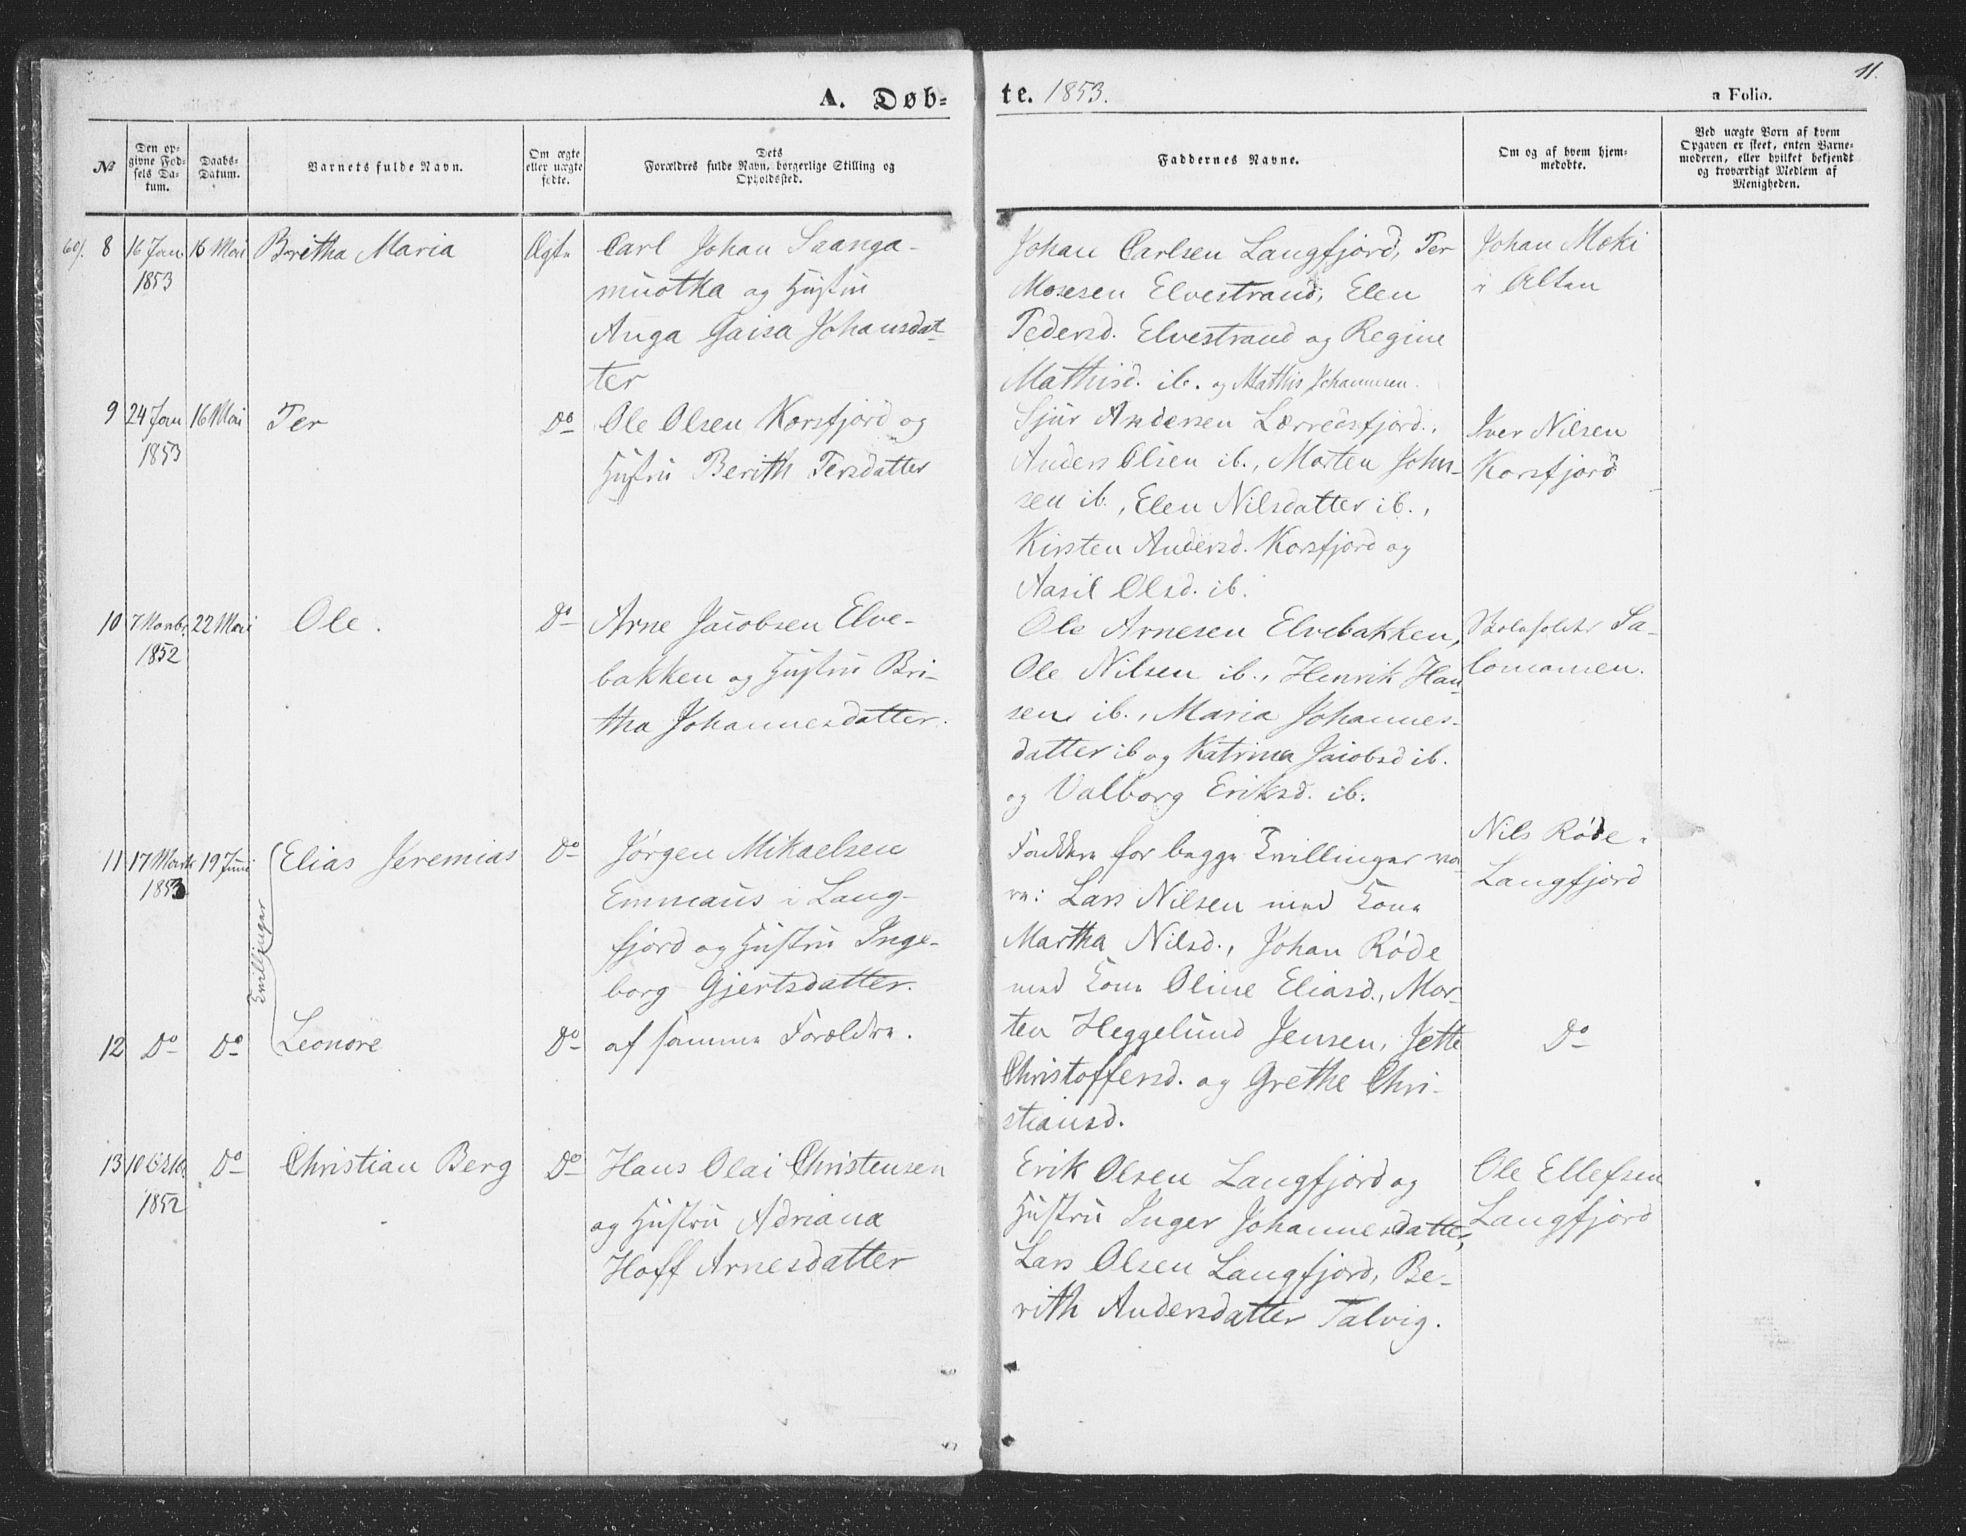 11.
A. Døb-
te. 1853.
a Folio.
No
Den op-
givne Fød-
sels Da-
tum.
Daabs-
Datum.
Barnets fulde Navn.
Om ægte
eller uægte
født.
Dets
Forældres fulde Navn, borgerlige Stilling og
Opholdssted.
Faddernes Navne.
Om og af hvem hjem-
medøbte.
Ved uægte Børn af hvem
Opgaven er skeet, enten Barne-
moderen, eller hvilket bekjendt
og troværdigt Medlem af
Menigheden.
8
16 Jan
1853
16 Mai
Britha Maria
Ægte
Carl Johan Saanga-
muotka og Hustru
Auga Gaisa Johansdat
ter
Johan Carlsen Langfjord, Per
Mosesen Elvestrand, Elen
Pedersd. Elvestrand og Regine
Mathisd. ib. og Mathis Johannesen.
Johan Moki
i Alten
9
24 Jan
1853
16 Mai
Per
Do
Ole Olsen Korsfjord og
Hustru Berith Persdatter
Sjur Andersen Lærredsfjord,
Anders Olsen ib., Morten John-
sen ib., Elen Nilsdatter ib.,
Kirsten Andersd. Korsfjord og
Aasil Olsd. ib.
Iver Nilsen
Korsfjord
10
7 Novbr
1852
22 Mai
Ole.
Do
Arne Jacobsen Elve-
bakken og Hustru Bri-
tha Johannesdatter.
Ole Arnesen Elvebakken,
Ole Nilsen ib., Henrik Han-
sen ib., Maria Johannes-
datter ib og Katrina Jacobsd ib.
og Valborg Eriksd. ib.
Sa-
lomonsen.
11
17 Marts
1853
19 Juni
Elias Jeremias
Tvillinger
Do
Jørgen Mikaelsen
Emmaus i Lang-
fjord og Hustru Inge-
borg Gjertsdatter.
Faddere for begge Tvillinger va-
re: Lars Nilsen med Kone
Martha Nilsd., Johan Røde
med Kone Oline Eliasd., Mor-
ten Heggelund Jensen, Jette
Christoffersd. og Grethe Chri-
stiansd.
Nils Røde
Langfjord
12
Do
Do
Leonore
Do
af samme Forældre.
Do
13
10 Oktbr
1852
Do
Christian Berg
Do
Hans Olai Christensen
og Hustru Adriana
Hoff Arnesdatter
Erik Olsen Langfjord og
Hustru Inger Johannesdatter,
Lars Olsen Langfjord, Be-
rith Andersdatter Talvig.
Ole Ellefsen
Langfjord